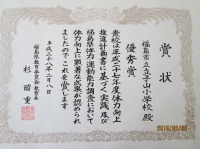 賞状
優秀賞
福島市立立子山小学校殿
貴校は平成二十七年度体力向上
推進計画書に基づく実践及び
福島県体力・運動能力調査において
体力向上に顕著な成果が認められ
ましたのでこれを賞します
平成二十八年二月八日
福島県教育委員会教育長
杉昭重
2016/02/08